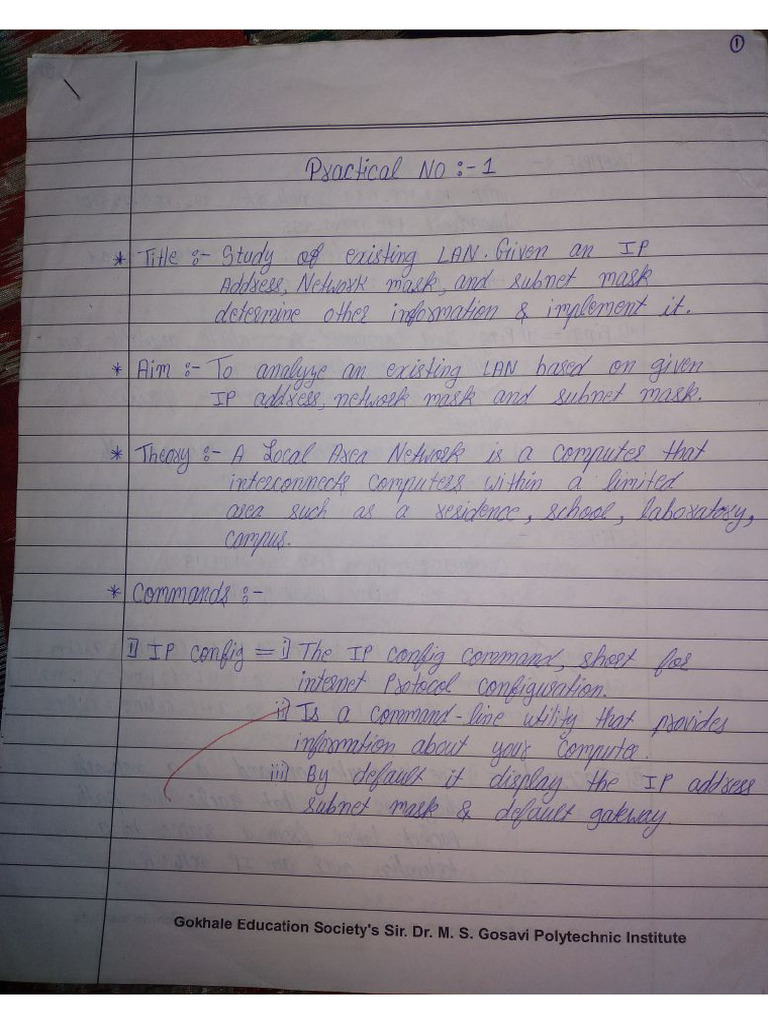 1
Practical No :- 1
* Title :- Study of existing LAN. Given an IP
Address, Network mask, and subnet mask
determine other information & implement it.
* Aim :- To analyze an existing LAN based on given
IP address, network mask and subnet mask.
* Theory :- A Local Area Network is a computer that
interconnects computers within a limited
area such as a residence, school, laboratory,
campus.
* Commands :-
1] IP config = i] The IP config command, short for
internet Protocol configuration.
ii] Is a command-line utility that provides
information about your computer.
iii] By default it display the IP address
subnet mask & default gateway.
Gokhale Education Society's Sir. Dr. M. S. Gosavi Polytechnic Institute